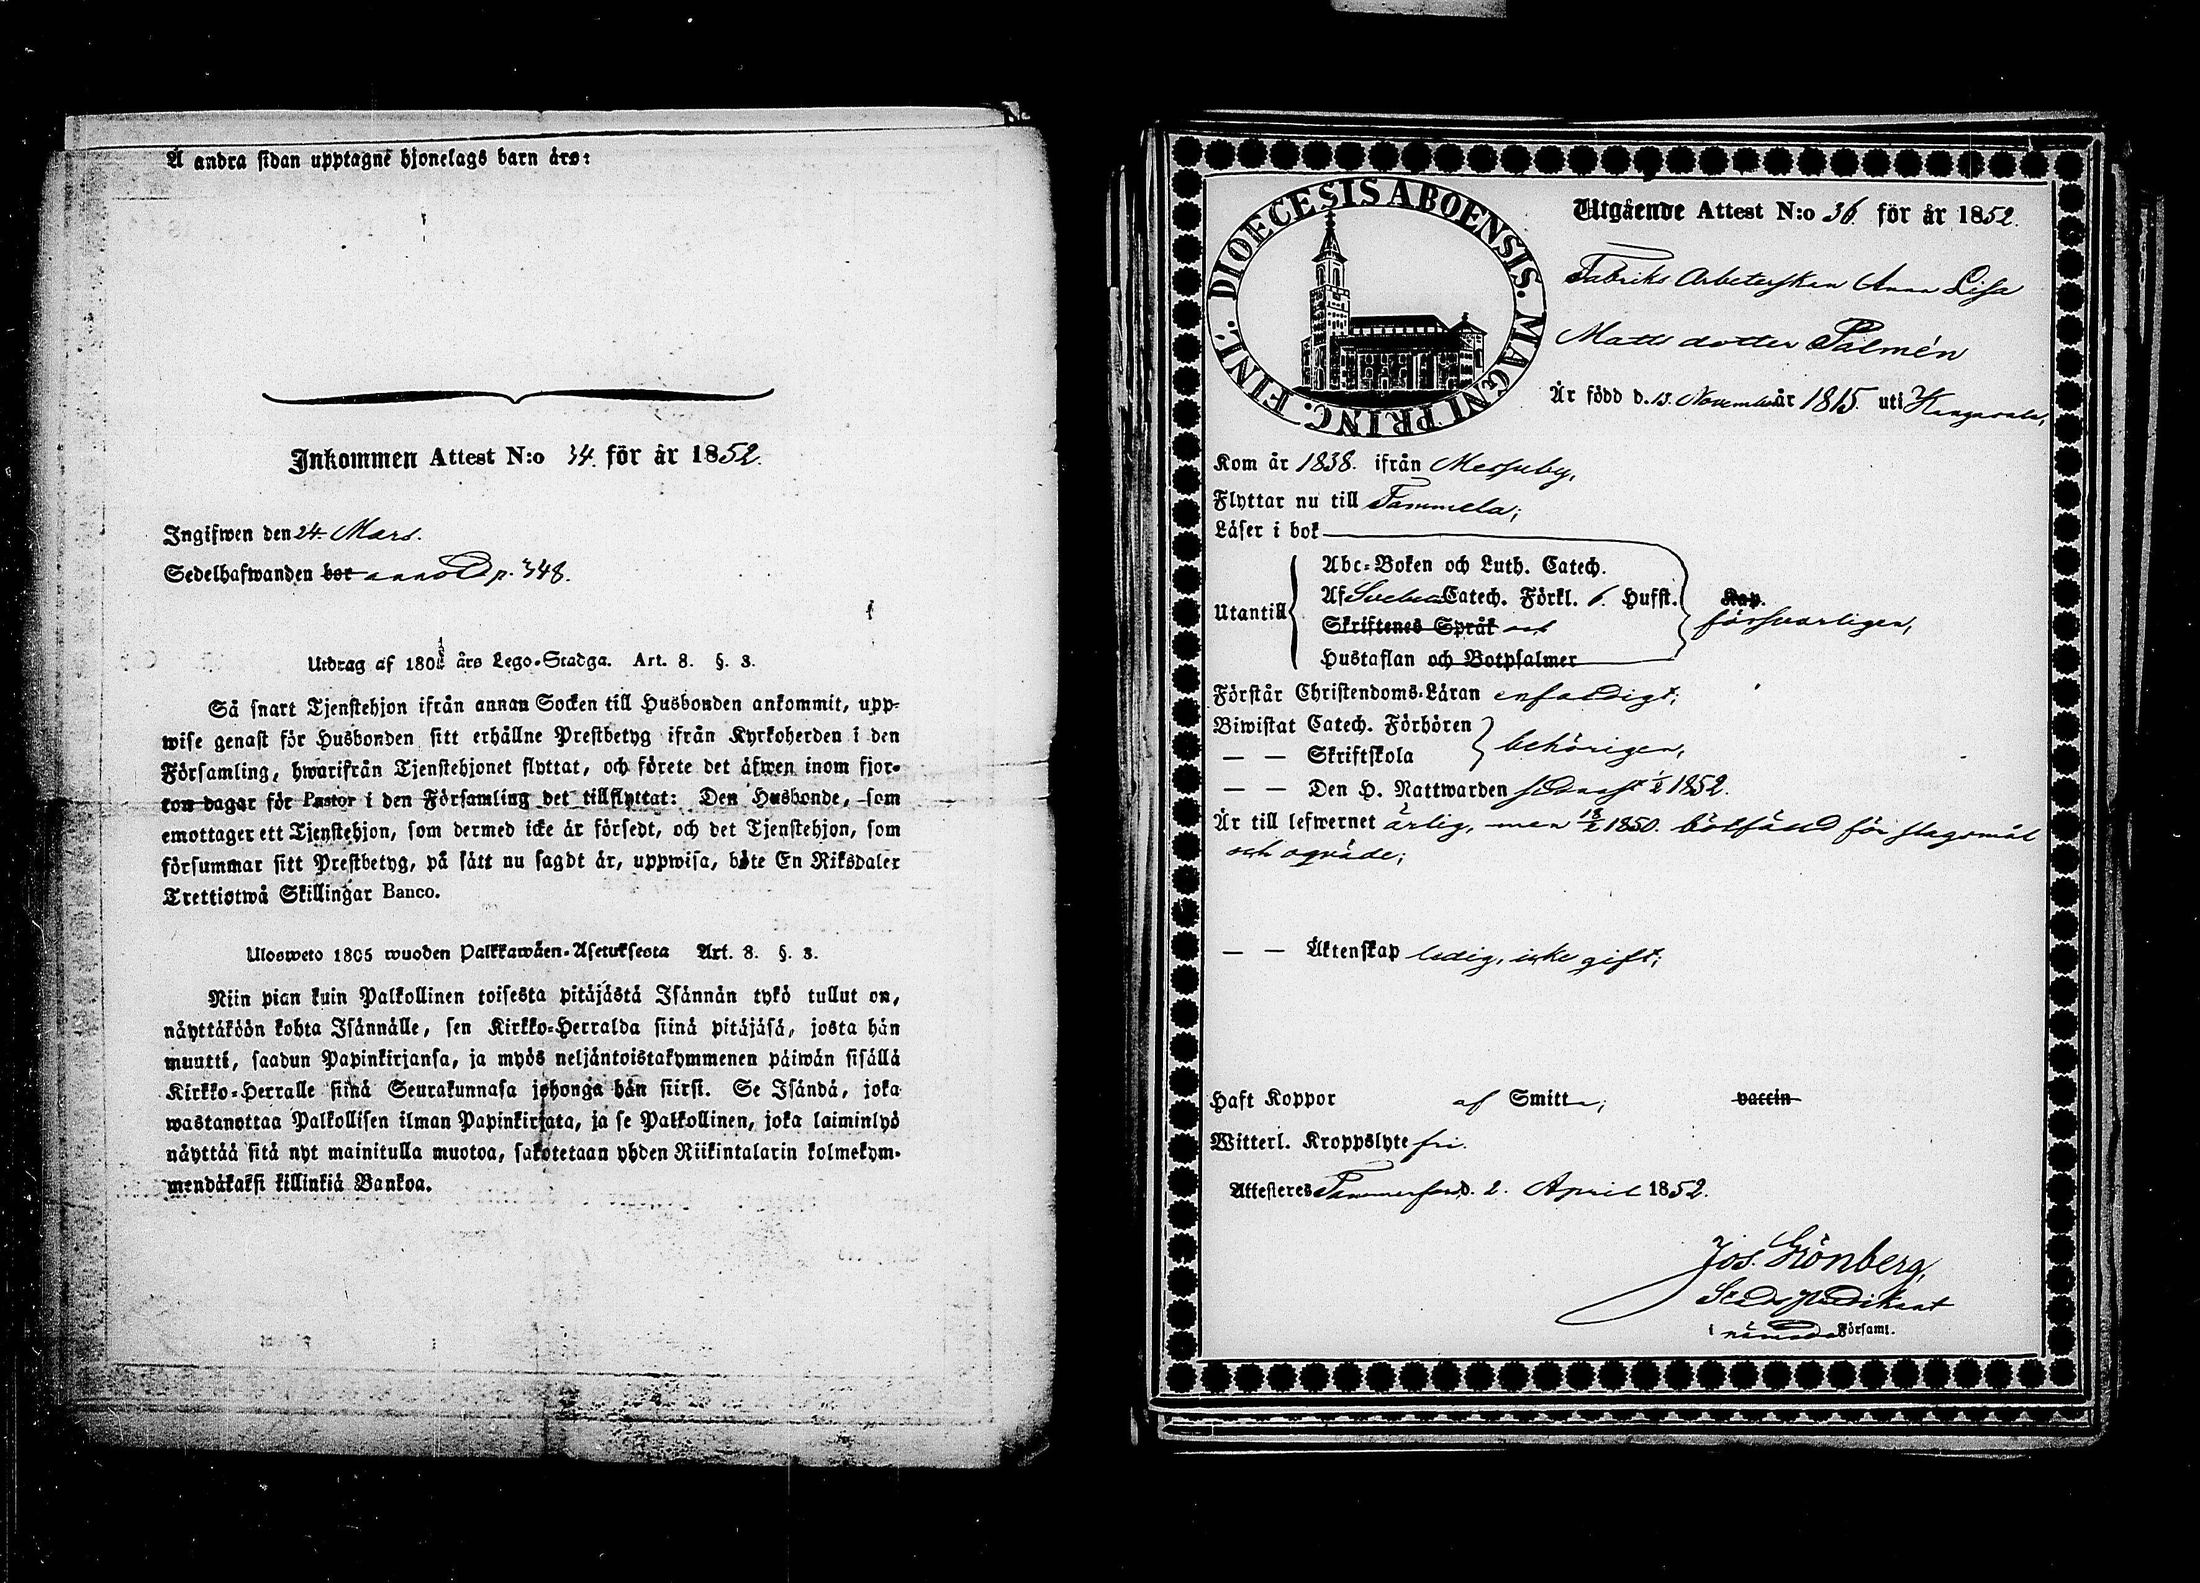 Å andra sidan upptagne hjonelags barn äro:
Inkommen Attest N:o 34. för år 1852.
Ingifwen den 24 Mars.
Sedelhafwanden bor annoD p. 348.
Utdrag af 1805 års Lego-Stadga. Art. 8. §. 3.
Så snart Tjenstehjon ifrån annan Socken till Husbonden ankommit, upp-
wise genast för Husbonden sitt erhållne Prestbetyg ifrån Kyrkoherden i den
Församling, hwarifrån Tjenstehjonet flyttat, och förete det äfwen inom fjor-
ton dagar för Pastor i den Församling det tillflyttat: Den Husbonde, som
emottager ett Tjenstehjon, som dermed icke är försedt, och det Tjenstehjon, som
försummar sitt Prestbetyg, på sätt nu sagdt är, uppwisa, böte En Riksdaler
Trettiotwå Skillingar Banco.
Ulosweto 1805 wuoden Palkkawäen-Asetuksesta Art. 8. §. 3.
Niin pian kuin Palkollinen toisesta pitäjästä Isännän tykö tullut on,
näyttäköön kohta Isännälle, sen Kirkko-Herralda siinä pitäjäsä, josta hän
muutti, saadun Papinkirjansa, ja myös neljäntoistakymmenen päiwän sisällä
Kirkko-Herralle siinä Seurakunnasa johonga hän siirsi. Se Isändä, joka
wastanottaa Palkollisen ilman Papinkirjata, ja se Palkollinen, joka laiminlyö
näyttää sitä nyt mainitulla muotoa, sakotetaan yhden Riikintalarin kolmekym-
mendäkaksi killinkiä Bankoa.
DIOECESIS ABOENSIS. MAGNI PRINC. FINL.
Utgående Attest N:o 36. för år 1852.
Fabriks Arbeterskan Anna Lisa
Matts dotter Palmén
År född d. 13. November år 1815. uti Kangasala,
Kom år 1838. ifrån Messuby,
Flyttar nu till Tammela;
Läser i bok
Abc-Boken och Luth. Catech.
Utantill Af Svebelii Catech. Förkl. 6. Hufst. Kap.
försvarligen,
Skriftenes Språk och
Hustaflan och Botpsalmer
Förstår Christendoms-Läran enfaldigt;
Biwistat Catech. Förhören
— — Skriftskola behörigen,
— — Den H. Nattwarden sednast 1/2 1852.
Är till lefwernet ärlig, men 18/2 1850. bötfäld för slagsmål
och oqväde;
— — Äktenskap ledig, icke gift;
Haft Koppor af Smitta; vaccin
Witterl. Kroppslyte fri.
Attesteres Tammerfors d. 2. April 1852.
Jos. Grönberg,
Stads Predikant
i nämnda Församl.